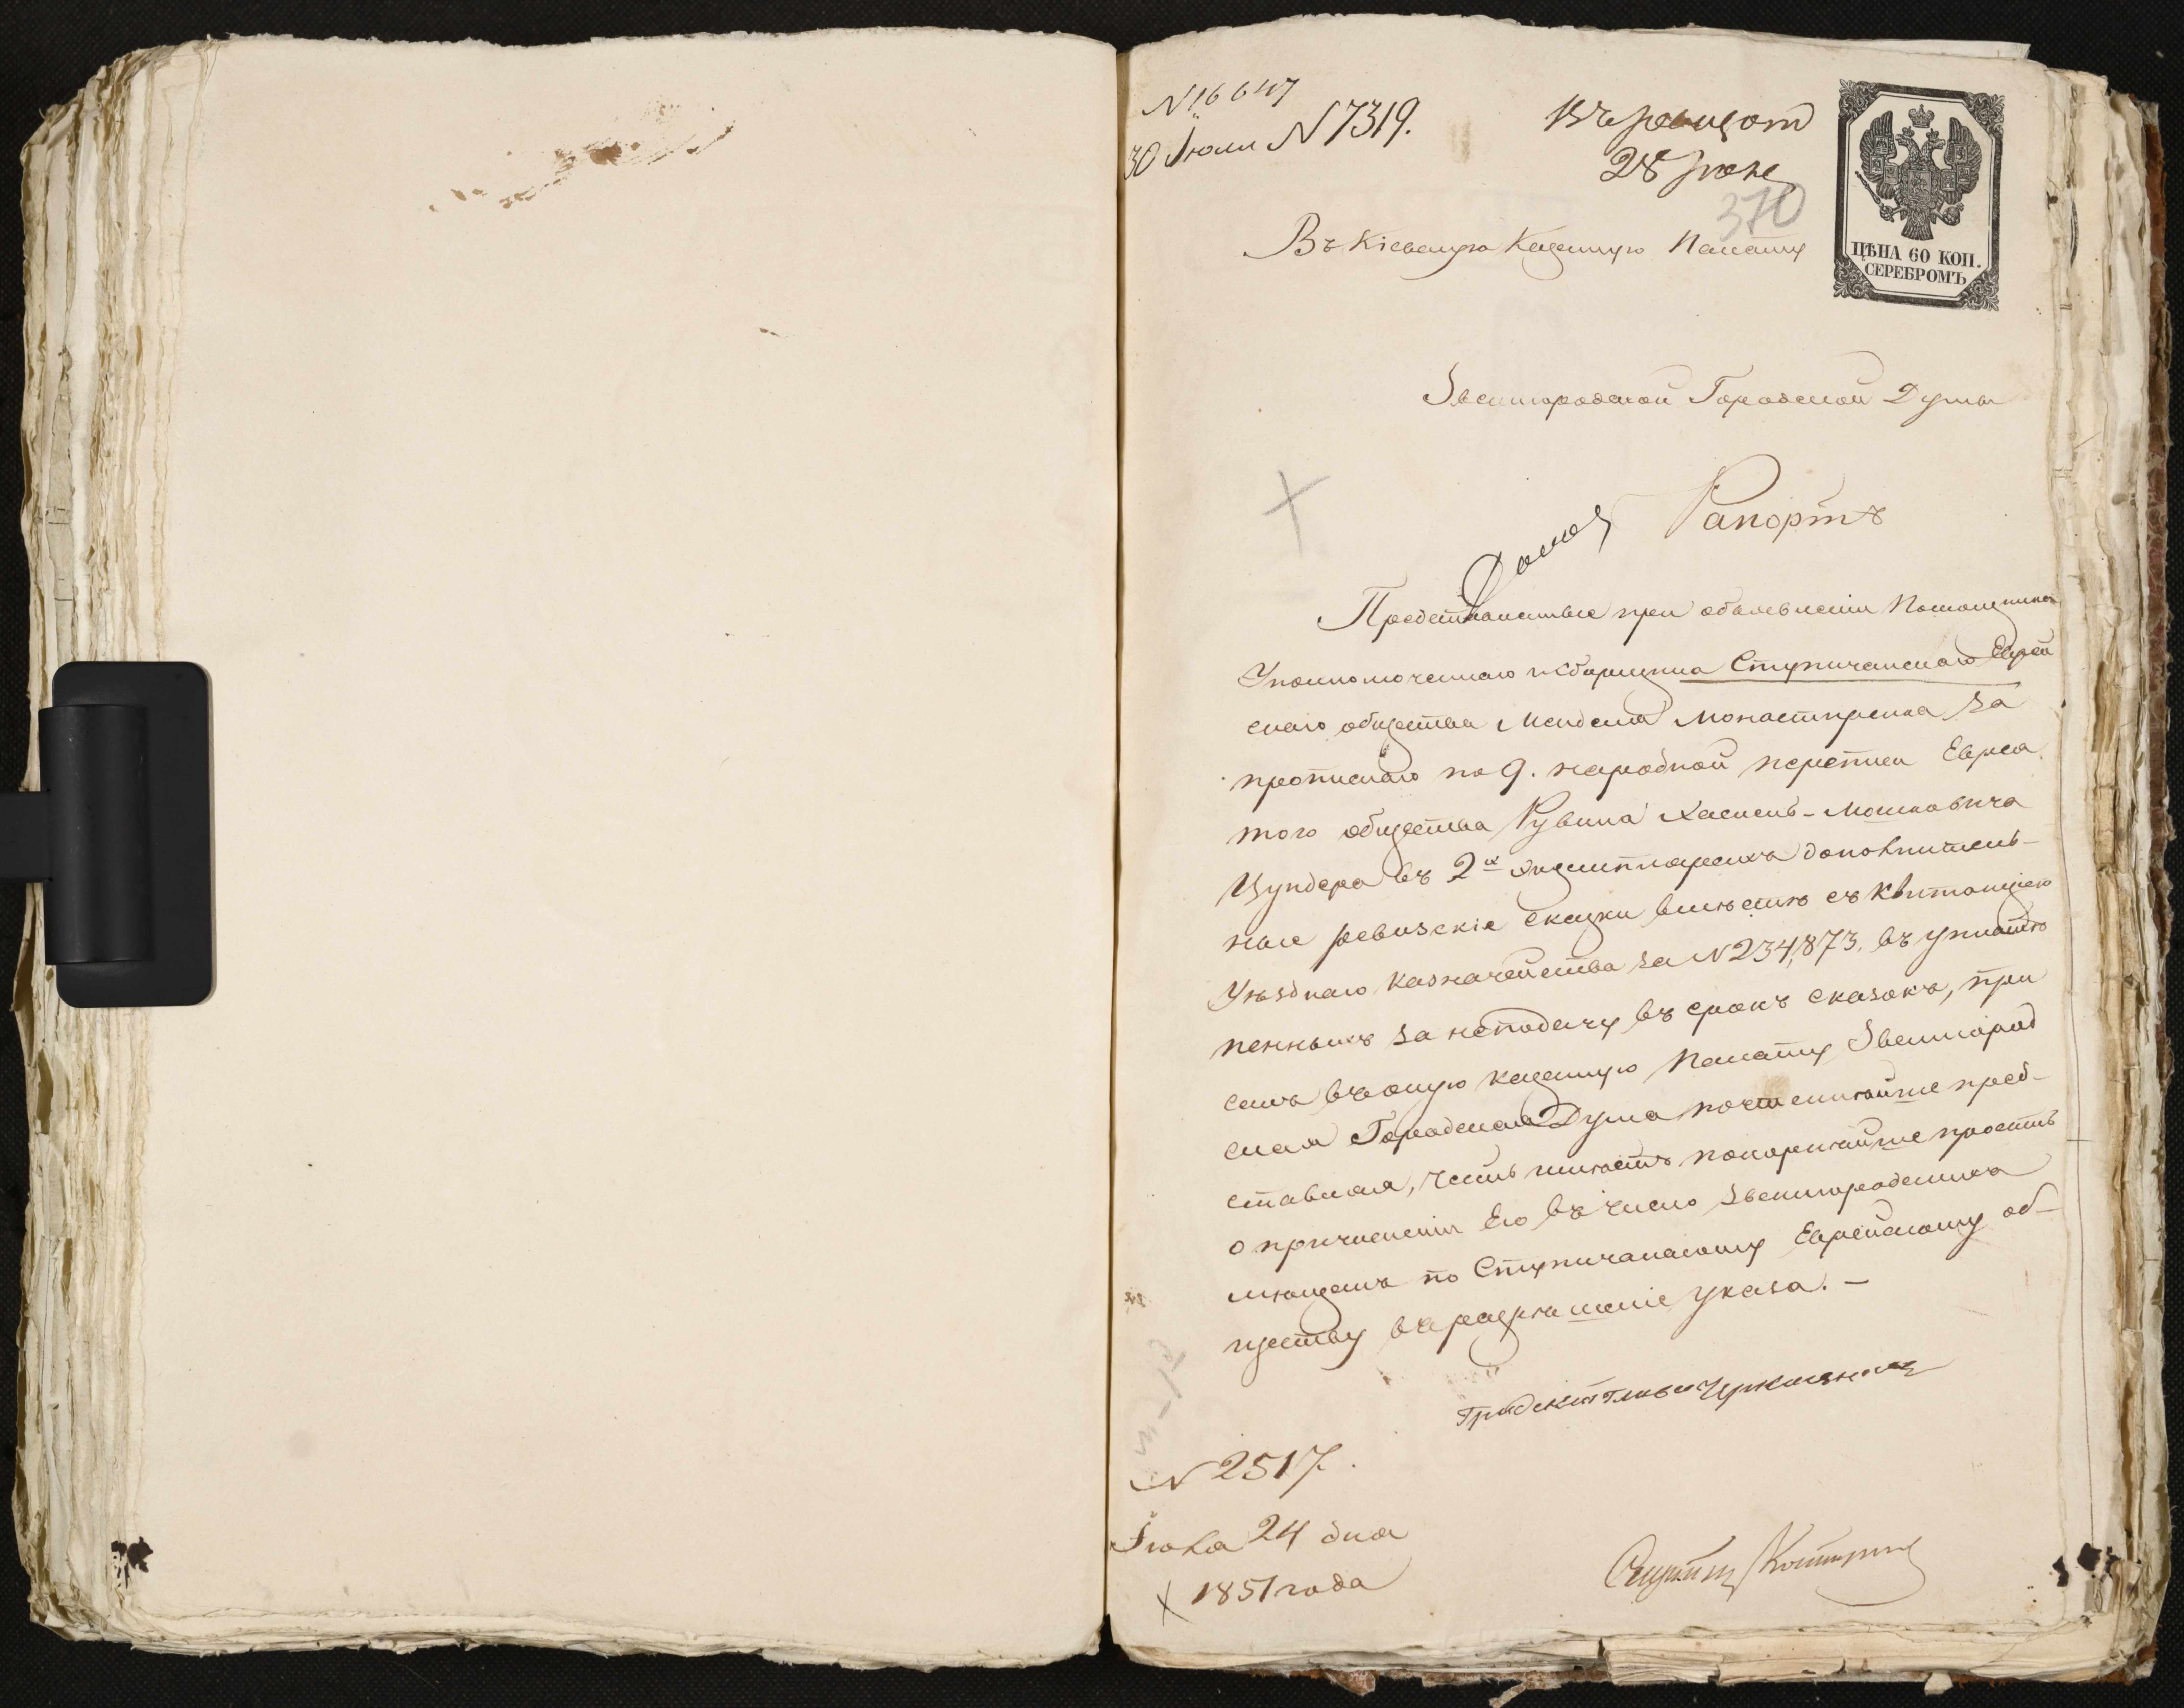 N 16647
30 Июля N 7319.
28 Июня
370
Въ Кіевскую Казенную Палату
ЦѢНА 60 КОП.
СЕРЕБРОМЪ
Звенигородской Городской Думы
Рапортъ
при объявленіи Помощника
Уполномоченнаго и сборщика Ступичанскаго Еврей
скаго общества Менделя Монастирска за
прописнаго по 9. народной переписи Еврея
того общества Рувина Хаскель-Мошковича
Цундера въ 2х экземплярахъ дополнитель-
ные ревизскіе сказки вмѣстѣ съ квитанціею
Уѣзднаго Казначейства за N 234,873. въ уплатѣ
пенныхъ за неподачу въ срокъ сказокъ, при
семъ въ оную казенную Палату Звенигород
ская Городская Дума почтеннѣйше пред-
ставляя, честь имѣетъ покорнѣйше просить
о причисленіи Его въ число Звенигородскихъ
мѣщанъ по Ступичанскому Еврейскому об-
ществу въ разрѣшеніе Указа. -
N 2517.
Іюня 24 дня
1851 года